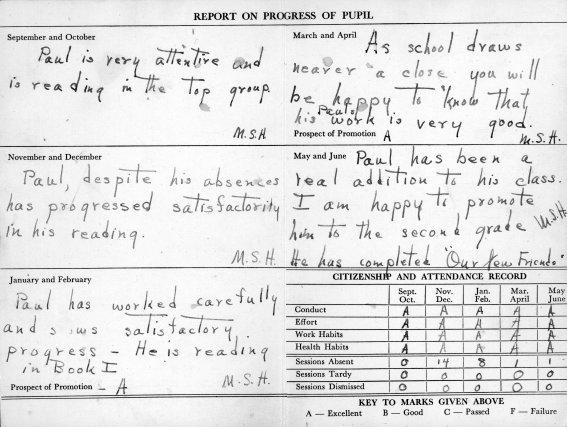 REPORT ON PROGRESS OF PUPIL
September and October
Paul is very attentive and
is reading in the top group
M.S.H
November and December
Paul, despite his absences
has progressed satisfactorily
in his reading.
M.S.H.
January and February
Paul has worked carefully
and s ws satisfactory
progress - He is reading
in Book I
Prospect of Promotion - A
M.S.H.
March and April
As school draws
nearer a close you will
be happy to know that
Paul's
his work is very good.
Prospect of Promotion A
M.S.H.
May and June
Paul has been a
real addition to his class.
I am happy to promote
him to the second grade
M.S.H.
He has completed "Our New Friends"
CITIZENSHIP AND ATTENDANCE RECORD
Sept. Oct. Nov. Dec. Jan. Feb. Mar. April May June
Conduct A A A A A
Effort A A A A A
Work Habits A A A A A
Health Habits A A A A A
Sessions Absent 0 14 8 1 1
Sessions Tardy 0 0 0 0 0
Sessions Dismissed 0 0 0 0 0
KEY TO MARKS GIVEN ABOVE
A — Excellent B — Good C — Passed F — Failure